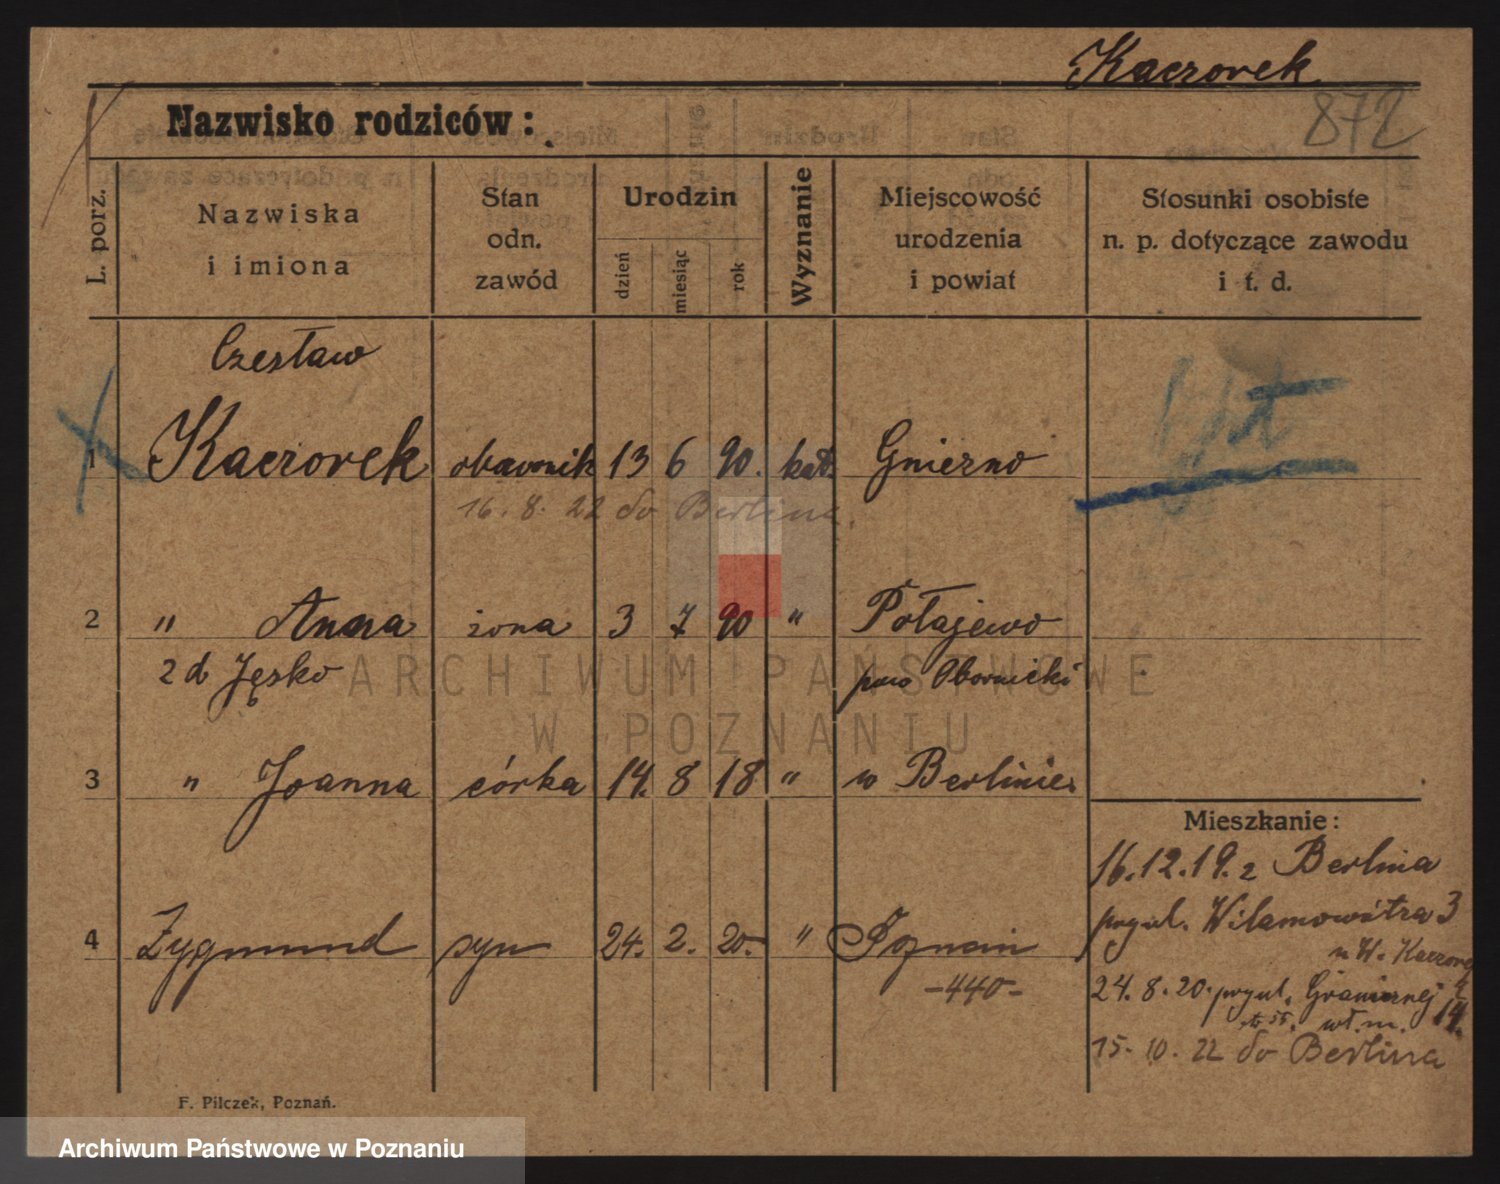 Kaczorek
872
Nazwisko rodziców:
L. porz.
Nazwiska
i imiona
Stan
odn.
zawód
Urodzin
dzień
miesiąc
rok
Wyznanie
Miejscowość
urodzenia
i powiat
Stosunki osobiste
n. p. dotyczące zawodu
i t. d.
Czesław
1 Kaczorek 13 6 90. kat. Gniezno
16. 8. 22 do Berlina.
2 " Anna żona 3 7 90 " Połajewo
2 d Jęsko pow Obornicki
3 " Joanna córka 14. 8 18 " w Berlinie
4 Zygmund syn 24. 2. 20. " Poznań
-440-
Mieszkanie:
16.12.19. z Berlina
przyul. 3
u W. Kaczorek
24. 8. 20. przyul. Granicznej
14.
wł. m.
15. 10. 22 do Berlina
F. Pilczek, Poznań.
ARCHIWUM PAŃSTWOWE
W POZNANIU
Archiwum Państwowe w Poznaniu